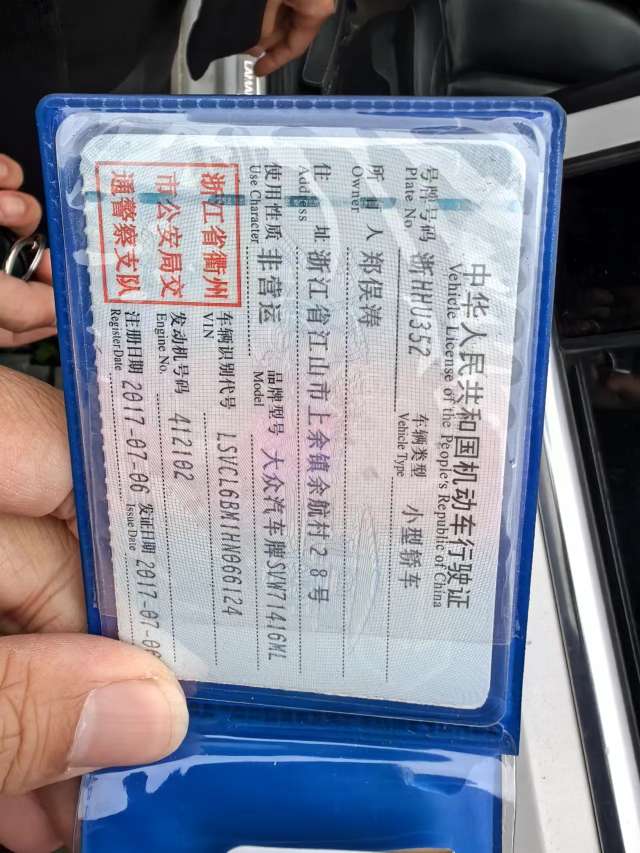 中华人民共和国机动车行驶证
Vehicle License of the People's Republic of China
号牌号码 浙HHU352 车辆类型 小型轿车
Plate No. Vehicle Type
所有人 郑俣涛
Owner
住址 浙江省江山市上余镇余航村28号
Address
使用性质 非营运 品牌型号 大众汽车牌SVW71416ML
Use Character Model
浙江省衢州
市公安局交
通警察支队
车辆识别代号 LSVCL6BM1HN066124
VIN
发动机号码 412102
Engine No.
注册日期 2017-07-06 发证日期 2017-07-06
Register Date Issue Date